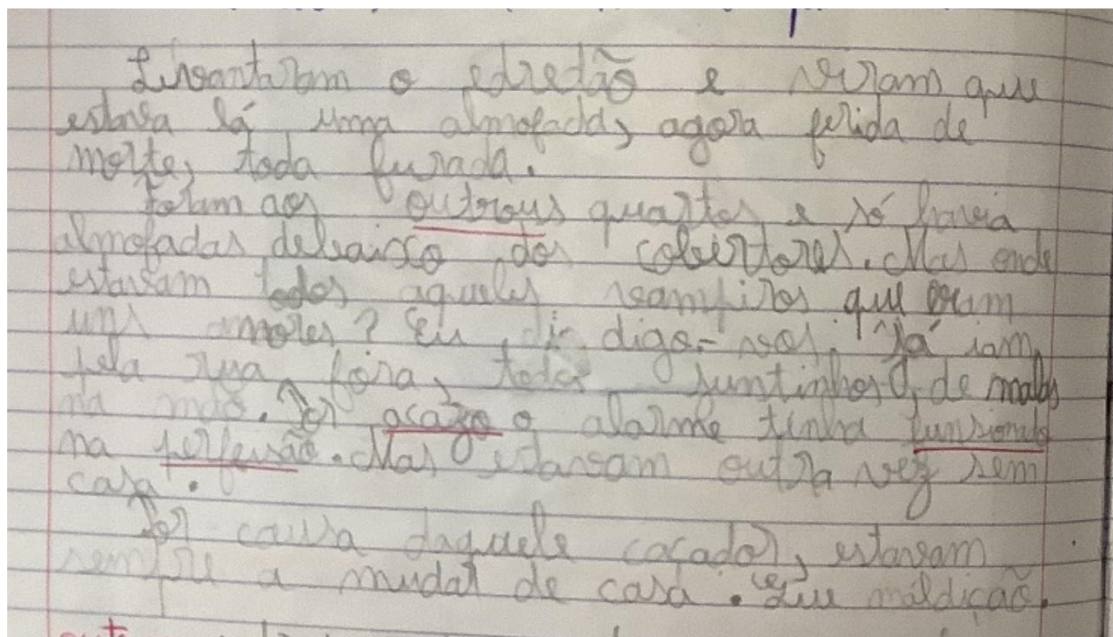 Levantaram o edredão e viram que
estava lá uma almofada, agora ferida de
morte, toda furada.
Foram aos outrous quartos e só havia
almofadas debaixo dos cobertores. Mas onde
estavam todos aqueles vampiros que eram
uns amores? Eu digo-vos. Já iam,
pela rua fora, todos juntinhos, de malas
na mão. Por acazo o alarme tinha funsionado
na perfeisão. Mas estavam outra vez sem
casa.
Por causa daquele caçador, estavam
sempre a mudar de casa. Que maldição.